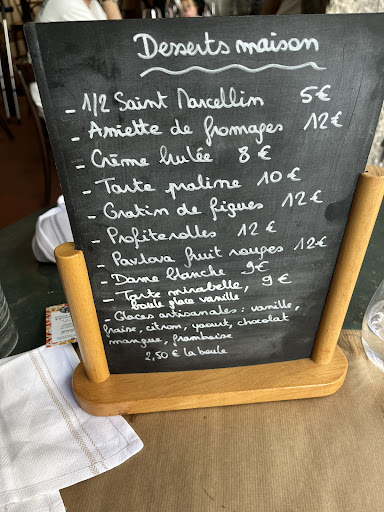 Desserts maison
- 1/2 Saint Marcellin 5€
- Assiette de fromages 12€
- Crème brulée 8€
- Tarte praline 10€
- Gratin de figues 12€
- Profiterolles 12€
- Pavlova fruit rouges 12€
- Dame blanche 9€
- Tarte mirabelle, 9€
boule glace vanille
- Glaces artisanales : vanille,
fraise, citron, yaourt, chocolat
mangue, framboise
2,50 € la boule